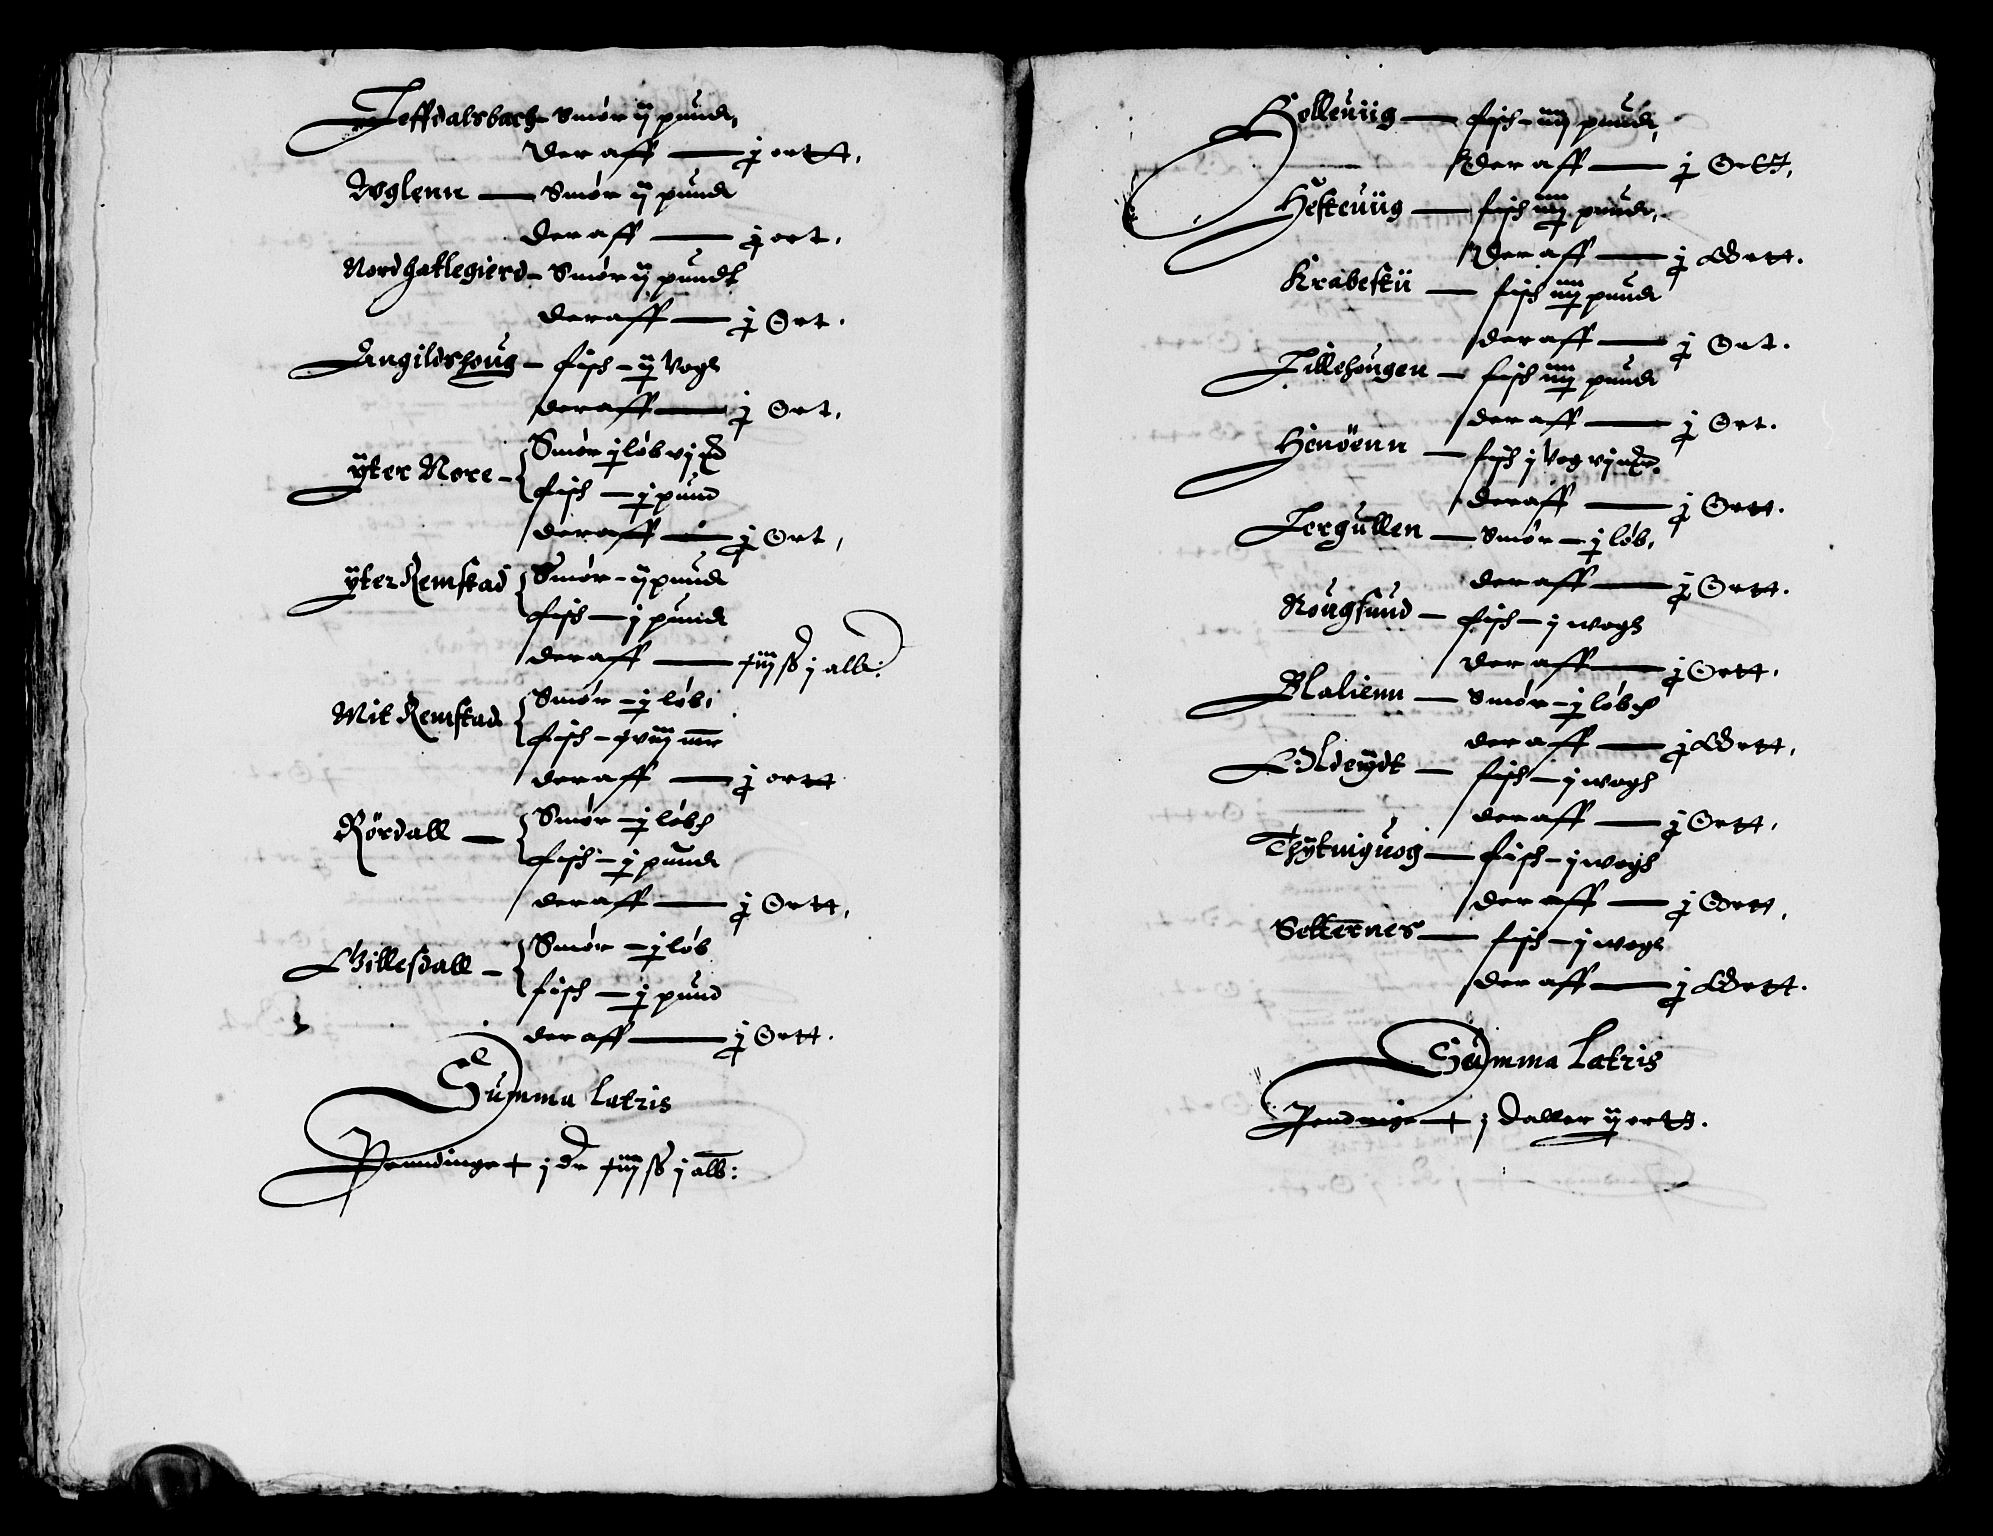 Jeffdalsbach Smør ij pundt,
Der aff — j ortt,
Woglenn — Smør ij pundt
Der aff — j ort,
Nordhatlegierd - Smør ij pundt
Deraff — j Ort.
Angildshoug - fisch - ij Vogh
deraff — j Ort,
ÿter Nore - Smør j løb vj
fisch — j pund
deraff — j Ort,
ÿter Remstad Smør - ij pundt
fisch — j pundt
deraff — ß j alb:
Mit Remstad Smør - j løb,
fisch - mr
deraff — j ortt
Rørdall — Smør - j løb
fisch - j pundt
deraff — j Ortt,
Gillesdall - Smør - j løb
fisch — j pund
deraff — j Ortt.
Summa Latris
Penndinge + j dr ß j alb:
Holleuiig — fisch - iiij pundt,
der aff — j Ortt,
Hesteuiig — fisch iiij pundt,
Der aff — j Ortt.
Krabestii — fisch iiij pundt
der aff — j Ort.
Lillehougen - fisch iiij pundt
der aff — j Ort.
Henöenn - fisch j Vog vj mr.
deraff — j Ortt.
Jergullen — Smør - j løb,
der aff — j Ortt.
Rougsund - fisch - j wogh
der aff — j Ortt.
Blalienn — Smør - j løb
der aff — j Ortt,
Oldeÿdt — fisch - j wogh
der aff — j Ortt,
Thÿtinguog — fisch - j wogh
der aff — j Ortt,
Setternes — fisch - j wogh
der aff — j Ortt.
Summa Latris
Pendnige + j Daller ij ortt.